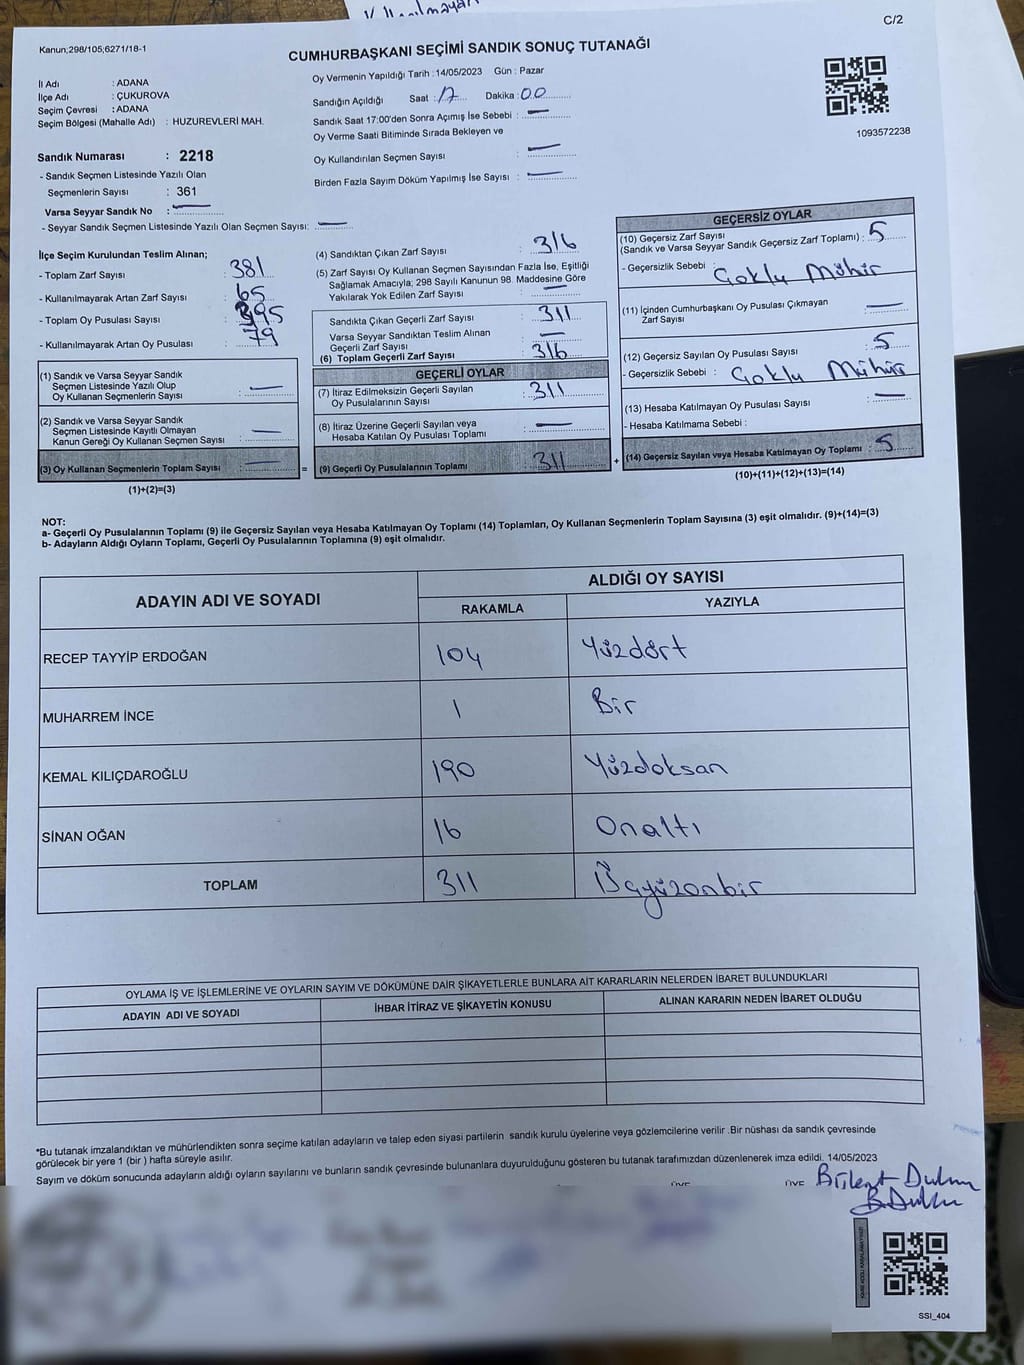 C/2
Kanun;298/105;6271/18-1
CUMHURBAŞKANI SEÇİMİ SANDIK SONUÇ TUTANAĞI
İl Adı : ADANA
İlçe Adı : ÇUKUROVA
Seçim Çevresi : ADANA
Seçim Bölgesi (Mahalle Adı) : HUZUREVLERİ MAH.
Oy Vermenin Yapıldığı Tarih :14/05/2023 Gün : Pazar
Sandığın Açıldığı Saat : 17 Dakika : 00
Sandık Saat 17:00'den Sonra Açımış İse Sebebi : —
Oy Verme Saati Bitiminde Sırada Bekleyen ve
Oy Kullandırılan Seçmen Sayısı : —
Birden Fazla Sayım Döküm Yapılmış İse Sayısı : —
1093572238
Sandık Numarası : 2218
- Sandık Seçmen Listesinde Yazılı Olan
Seçmenlerin Sayısı : 361
Varsa Seyyar Sandık No : —
- Seyyar Sandık Seçmen Listesinde Yazılı Olan Seçmen Sayısı: —
İlçe Seçim Kurulundan Teslim Alınan;
- Toplam Zarf Sayısı : 381
- Kullanılmayarak Artan Zarf Sayısı : 65
- Toplam Oy Pusulası Sayısı : 395
- Kullanılmayarak Artan Oy Pusulası : 79
(1) Sandık ve Varsa Seyyar Sandık
Seçmen Listesinde Yazılı Olup
Oy Kullanan Seçmenlerin Sayısı : —
(2) Sandık ve Varsa Seyyar Sandık
Seçmen Listesinde Kayıtlı Olmayan
Kanun Gereği Oy Kullanan Seçmen Sayısı : —
(3) Oy Kullanan Seçmenlerin Toplam Sayısı : — =
(1)+(2)=(3)
(4) Sandıktan Çıkan Zarf Sayısı : 316
(5) Zarf Sayısı Oy Kullanan Seçmen Sayısından Fazla İse, Eşitliği
Sağlamak Amacıyla; 298 Sayılı Kanunun 98. Maddesine Göre
Yakılarak Yok Edilen Zarf Sayısı : —
Sandıkta Çıkan Geçerli Zarf Sayısı : 311
Varsa Seyyar Sandıktan Teslim Alınan
Geçerli Zarf Sayısı : —
(6) Toplam Geçerli Zarf Sayısı : 316
GEÇERLİ OYLAR
(7) İtiraz Edilmeksizin Geçerli Sayılan
Oy Pusulalarının Sayısı : 311
(8) İtiraz Üzerine Geçerli Sayılan veya
Hesaba Katılan Oy Pusulası Toplamı : —
(9) Geçerli Oy Pusulalarının Toplamı : 311 +
GEÇERSİZ OYLAR
(10) Geçersiz Zarf Sayısı
(Sandık ve Varsa Seyyar Sandık Geçersiz Zarf Toplamı) : 5
- Geçersizlik Sebebi : Çoklu Mühür
(11) İçinden Cumhurbaşkanı Oy Pusulası Çıkmayan
Zarf Sayısı : —
(12) Geçersiz Sayılan Oy Pusulası Sayısı : 5
- Geçersizlik Sebebi : Çoklu Mühür
(13) Hesaba Katılmayan Oy Pusulası Sayısı : —
- Hesaba Katılmama Sebebi :
(14) Geçersiz Sayılan veya Hesaba Katılmayan Oy Toplamı : 5
(10)+(11)+(12)+(13)=(14)
NOT:
a- Geçerli Oy Pusulalarının Toplamı (9) ile Geçersiz Sayılan veya Hesaba Katılmayan Oy Toplamı (14) Toplamları, Oy Kullanan Seçmenlerin Toplam Sayısına (3) eşit olmalıdır. (9)+(14)=(3)
b- Adayların Aldığı Oyların Toplamı, Geçerli Oy Pusulalarının Toplamına (9) eşit olmalıdır.
ADAYIN ADI VE SOYADI ALDIĞI OY SAYISI
RAKAMLA YAZIYLA
RECEP TAYYİP ERDOĞAN 104 Yüzdört
MUHARREM İNCE 1 Bir
KEMAL KILIÇDAROĞLU 190 Yüzdoksan
SİNAN OĞAN 16 Onaltı
TOPLAM 311 Üçyüzonbir
OYLAMA İŞ VE İŞLEMLERİNE VE OYLARIN SAYIM VE DÖKÜMÜNE DAİR ŞİKAYETLERLE BUNLARA AİT KARARLARIN NELERDEN İBARET BULUNDUKLARI
ADAYIN ADI VE SOYADI İHBAR İTİRAZ VE ŞİKAYETİN KONUSU ALINAN KARARIN NEDEN İBARET OLDUĞU
*Bu tutanak imzalandıktan ve mühürlendikten sonra seçime katılan adayların ve talep eden siyasi partilerin sandık kurulu üyelerine veya gözlemcilerine verilir .Bir nüshası da sandık çevresinde
görülecek bir yere 1 (bir ) hafta süreyle asılır.
Sayım ve döküm sonucunda adayların aldığı oyların sayılarını ve bunların sandık çevresinde bulunanlara duyurulduğunu gösteren bu tutanak tarafımızdan düzenlenerek imza edildi. 14/05/2023
ÜYE ÜYE Bülent
SSI_404